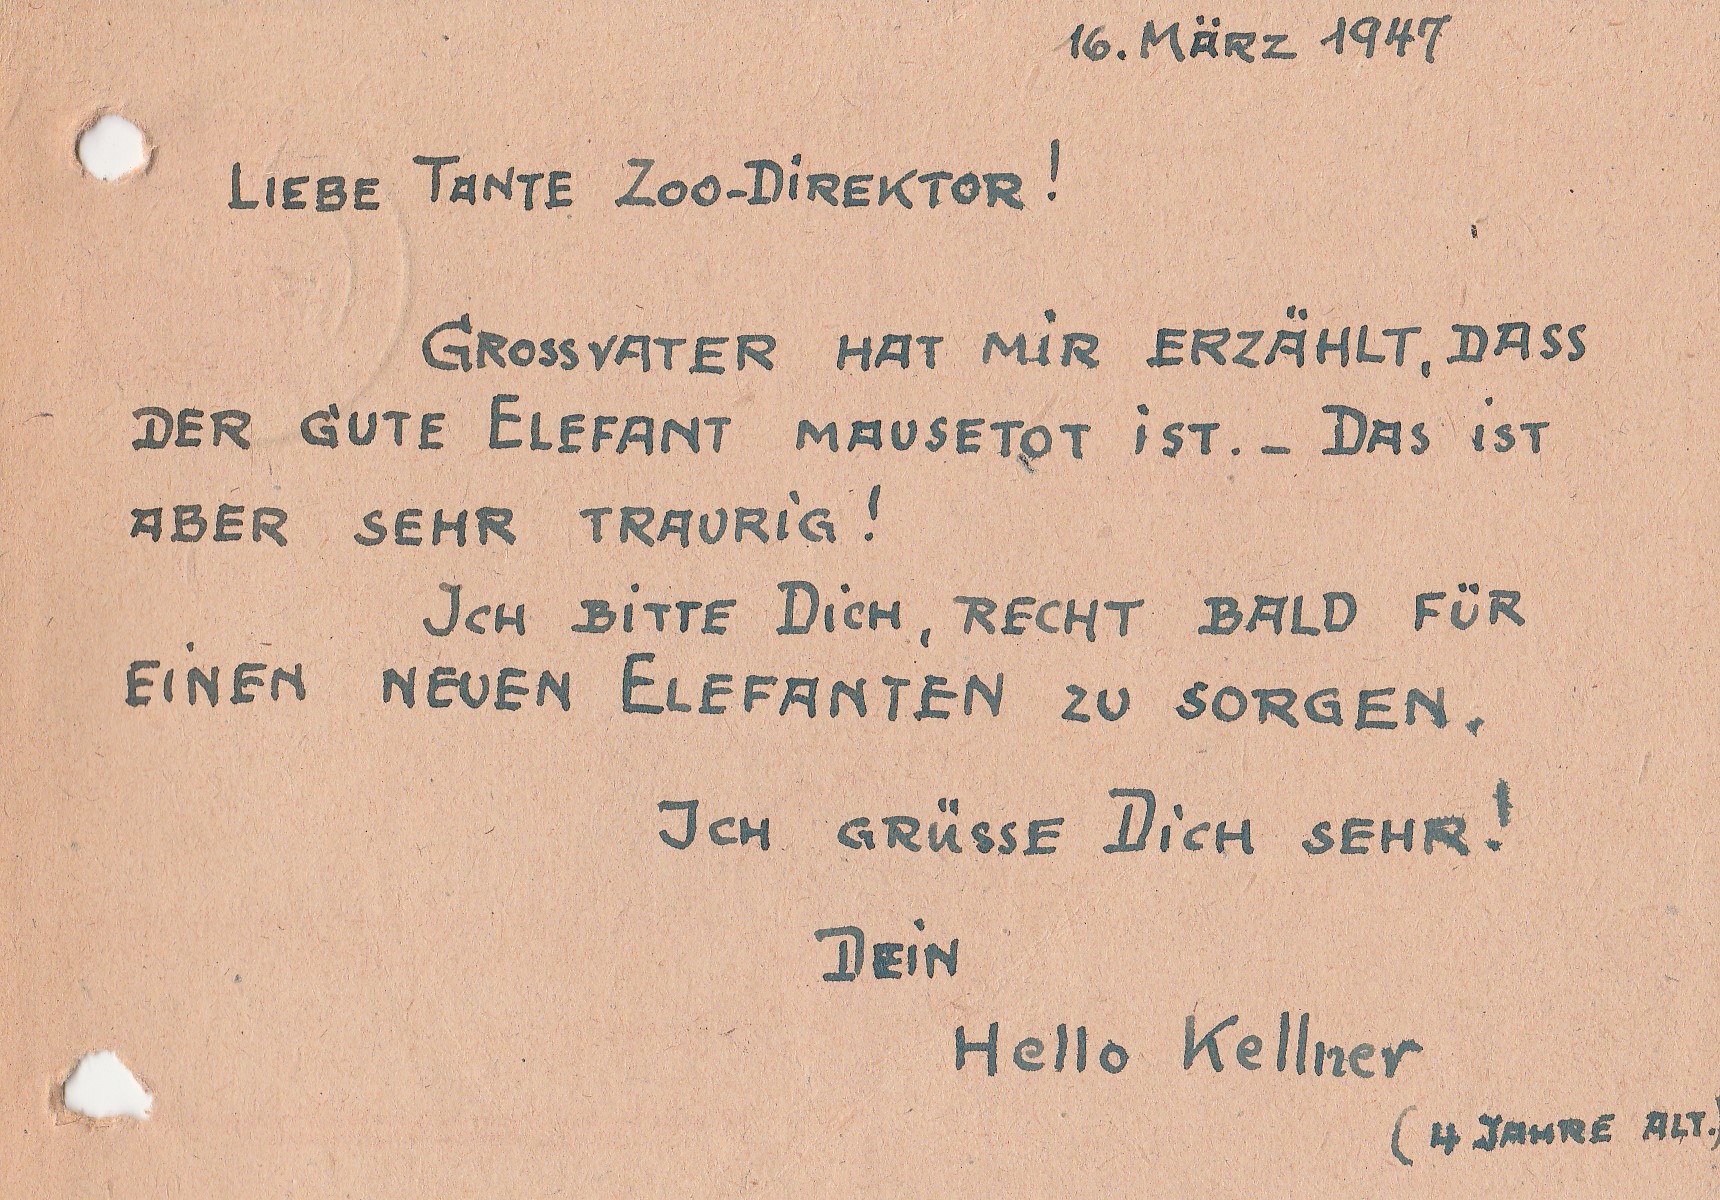 16. März 1947
Liebe Tante Zoo-Direktor!
Grossvater hat mir erzählt, dass
der gute Elefant mausetot ist. – Das ist
aber sehr traurig!
Ich bitte Dich, recht bald für
einen neuen Elefanten zu sorgen.
Ich grüsse Dich sehr!
Dein
Hello Kellner
(4 Jahre alt.)